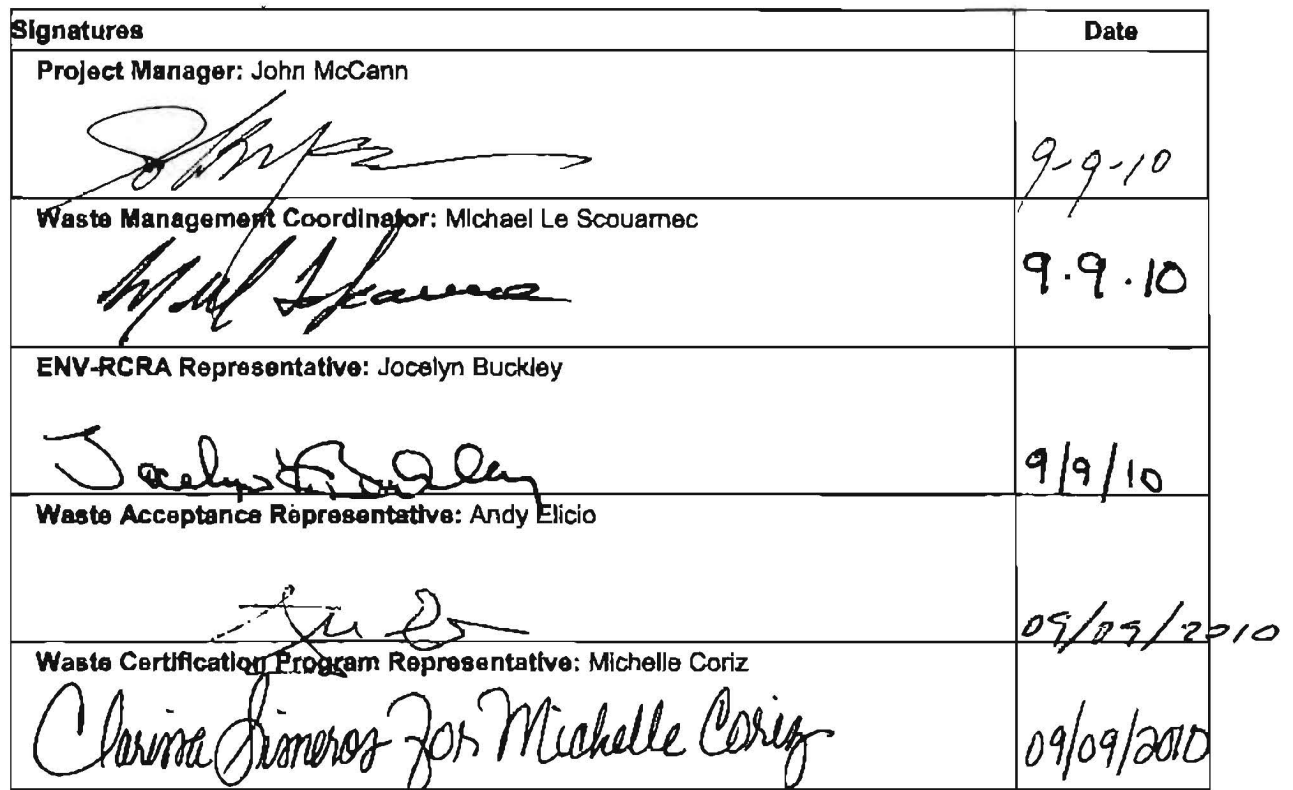 Signatures Date
Project Manager: John McCann
9-9-10
Waste Management Coordinator: Michael Le Scouarnec
9.9.10
ENV-RCRA Representative: Jocelyn Buckley
Jocelyn Buckley 9/9/10
Waste Acceptance Representative: Andy Elicio
09/09/2010
Waste Certification Program Representative: Michelle Coriz
Clarissa Sisneros For Michelle Coriz 09/09/2010